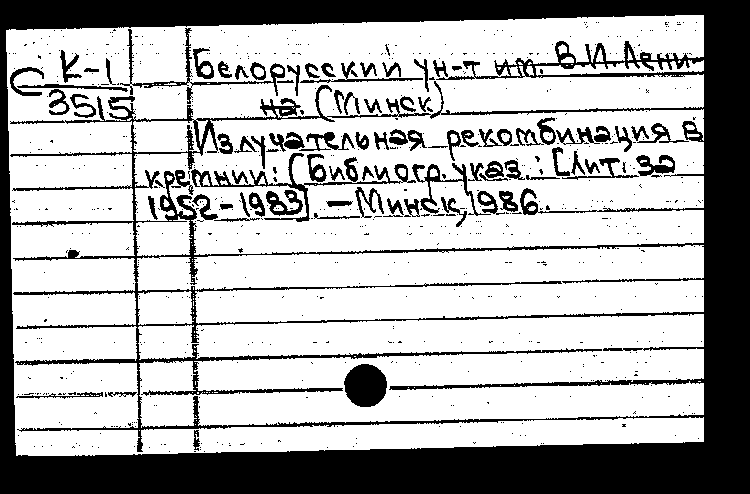 С К-1
3515
Белорусский ун-т им. В.И. Лени-
на. (Минск).
Излучательная рекомбинация в
кремнии: (Библиогр. указ. : [Лит. за
1952-1983]. — Минск, 1986.